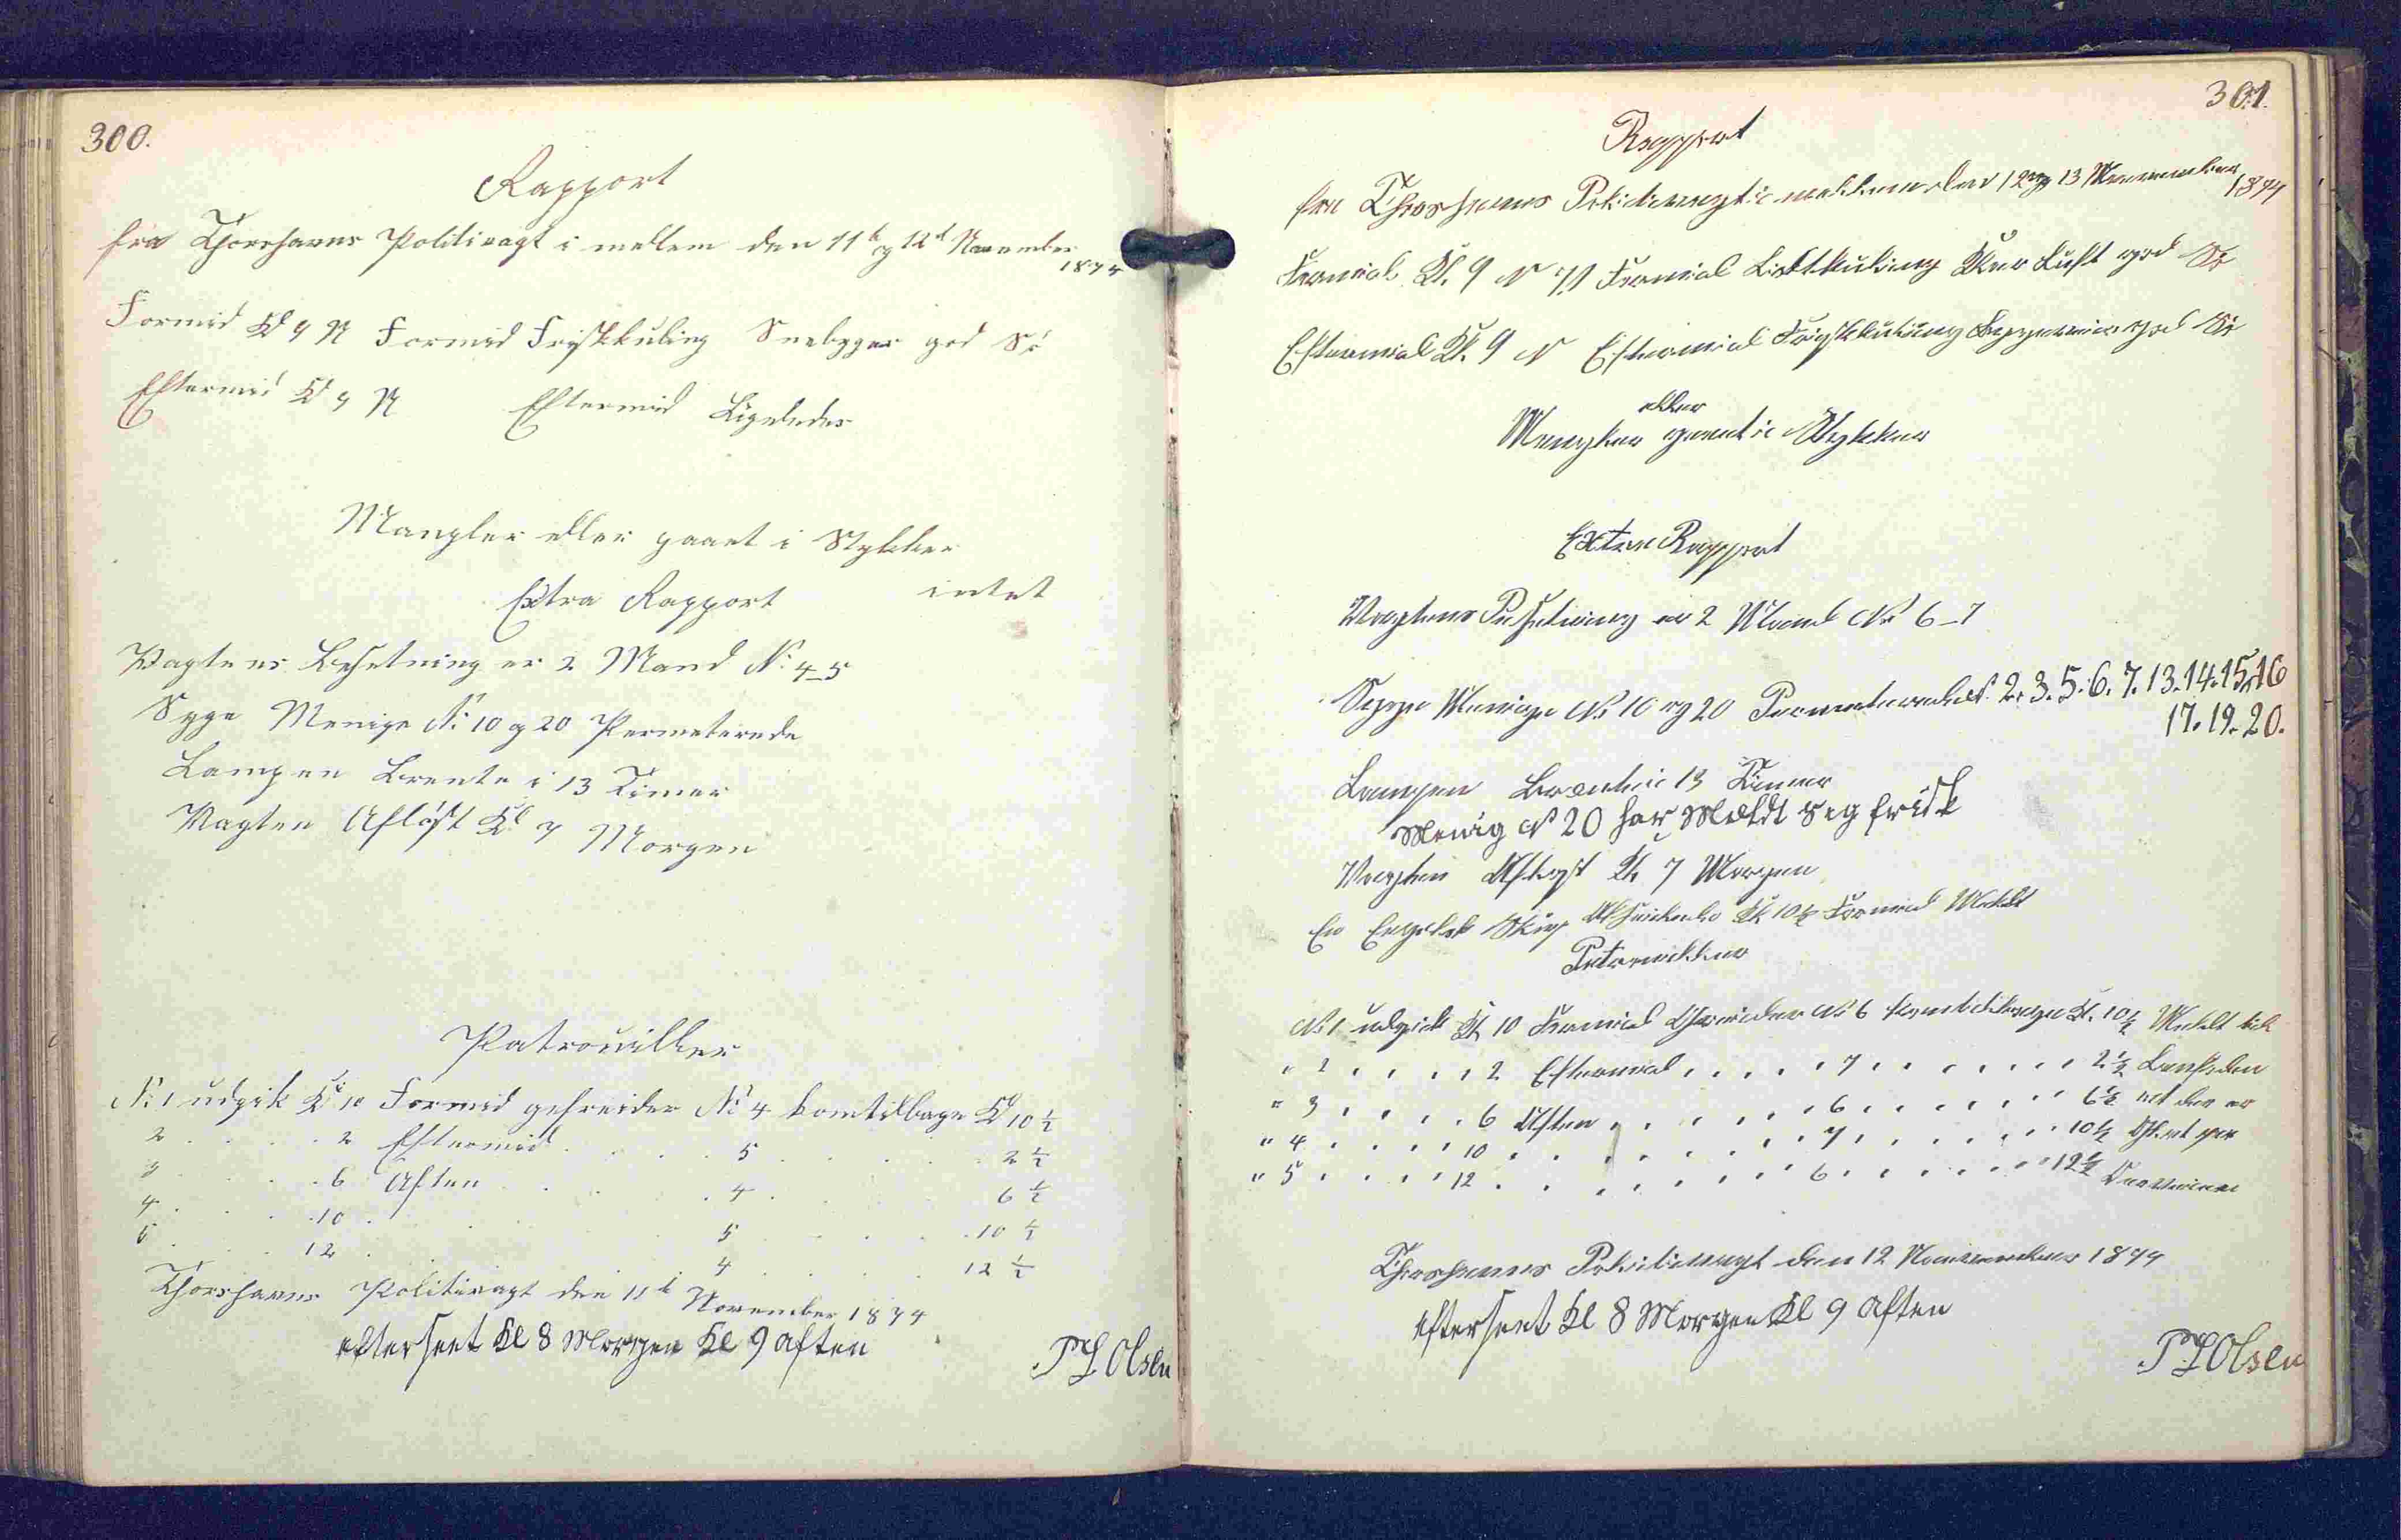 300.
Rapport
fra Thorshavns Politivagt i mellem den 11t og 12t November
1874
Formid Kl 9 N Formid Friskkuling Sneebyger god Sø
Eftermid Kl 9 N Eftermid Ligeledes
Mangler eller gaaet i Stykker
Extra Rapport intet
Vagtens Besetning er 2 Mand No 4_5
Syge Menige No 10 og 20 Permeterede
Lampen Brente i 13 Timer
Vagten Afløst Kl 7 Morgen
Patrouiller
No 1 udgik Kl 10 Formid gefreider No 4 kom tilbage Kl 10 1/2
2 . . . . 2 Eftermid . . . . 5 . . . . 2 1/2
3 . . . . 6 Aften . . . . 4 . . . . 6 1/2
4 . . . . 10 . . . . 5 . . . . 10 1/2
5 . . . . 12 . . . . 4 . . . . 12 1/2
Thorshavns Politivagt den 11t November 1874
efterseet Kl 8 Morgen Kl 9 Aften
P L Olsen
301.
Rapport
fra Thorshavns Politivagt i mellem den 12 og 13 November
1874
Formid Kl. 9 N V Formid Lidtkuling Klar Luft god Sø
Eftermid Kl. 9 N Eftermid Friskkuling god Sø
eller
Mangler gaaet i Stykker
Extra Rapport
Vagtens Besetning er 2 Mand No 6_7
Syge Menige No 10 og 20 Permeterede No 2. 3. 5. 6. 7. 13. 14. 15. 16
17. 19. 20.
Lampen Brænte i 13 Timer
Menig No 20 har Meldt seg frisk
Vagten Afløst Kl 7 Morgen
En Engelsk Skip Kl 10 1/2 Formid Meldt
Patrouiller
No 1 udgik Kl 10 Formid Gefreider No 6 kom tilbage Kl. 10 1/2 Meldt til
" 2 . . . . 2 Eftermid . . . . 7 . . . . 2 1/2
" 3 . . . . 6 Aften . . . . 6 . . . . 6 1/2 at der er
" 4 . . . . 10 . . . . 7 . . . . 10 1/2
" 5 . . . . 12 . . . . 6 . . . . 12 1/2
Thorshavns Politivagt den 12 November 1874
efterseet Kl 8 Morgen Kl 9 Aften
P L Olsen